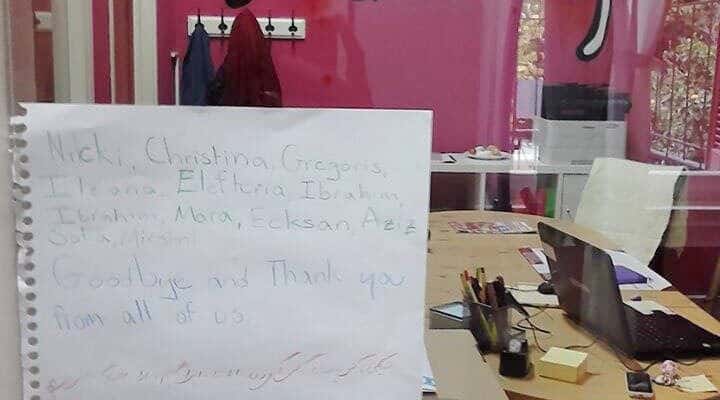 Nicki, Christina, Gregoris,
Ileana, Elefturia, Ibrahim,
Ibrahim, Mara, Ecksan, Aziz
Goodbye and Thank you
from all of us.